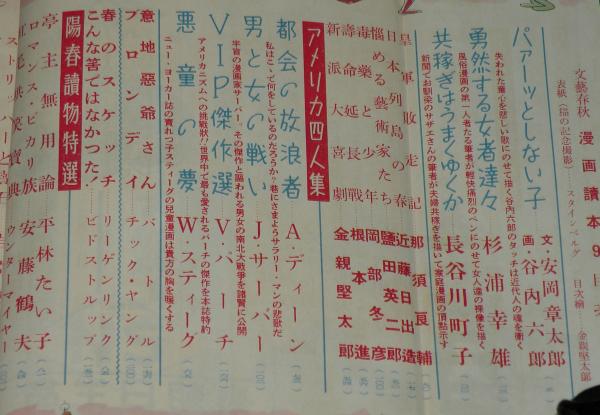 文藝春秋 漫画讀本
表紙（猫の記念撮影） スタインベルグ 目次繪 金親堅太郎
パァーッとしない子 文・安岡章太郎 画・谷内六郎
失われた童心を悲しい歌にのせて描く谷内六郎のタッチは近代人の魂を衝く
勇然する女者達々 杉浦幸雄
風俗漫画の第一人者たる筆者が軽快痛烈のペンにのせて女人達の裸像を描く
共稼ぎはうまくゆくか 長谷川町子
新聞でお馴染のサザエさんの筆者が夫婦共稼ぎを描いて家庭漫画の頂點示す
皇軍敗走記 那須良輔
日本列島の春 近藤日出造
悩める藝術家たち 鹽田英二郎
毒藥と少年 岡部冬彦
壽命延長戰 根本進
新派大喜劇 金親堅太郎
アメリカ四人集
都会の放浪者 A・ディーン
私はこゝで何をしているのだろうか？巷にさまようサラリー・マンの悲歌だ
男と女の戰い J・サーバー
半盲の漫画家サーバー、その傑作と謳われる男女の南北大戰爭を諸賢に公開
VIP傑作選 V・パーチ
アメリカニズムへの挑戰状!!世界中で最も愛されるパーチの傑作を本誌特約
悪童の夢 W・スティーグ
ニュー・ヨーカー誌の賣れっ子スティーグの兒童漫画は貴方の胸を暖くする
意地惡爺さん バトル
ブロンディ チック・ヤング
春のスケッチ リーゲンリング
こんな筈ではなかつた！ ビドストルップ
陽春讀物特選
亭主無用論 平林たい子
ロマンス・ピカリ族 安藤鶴夫
ウンターマイヤー